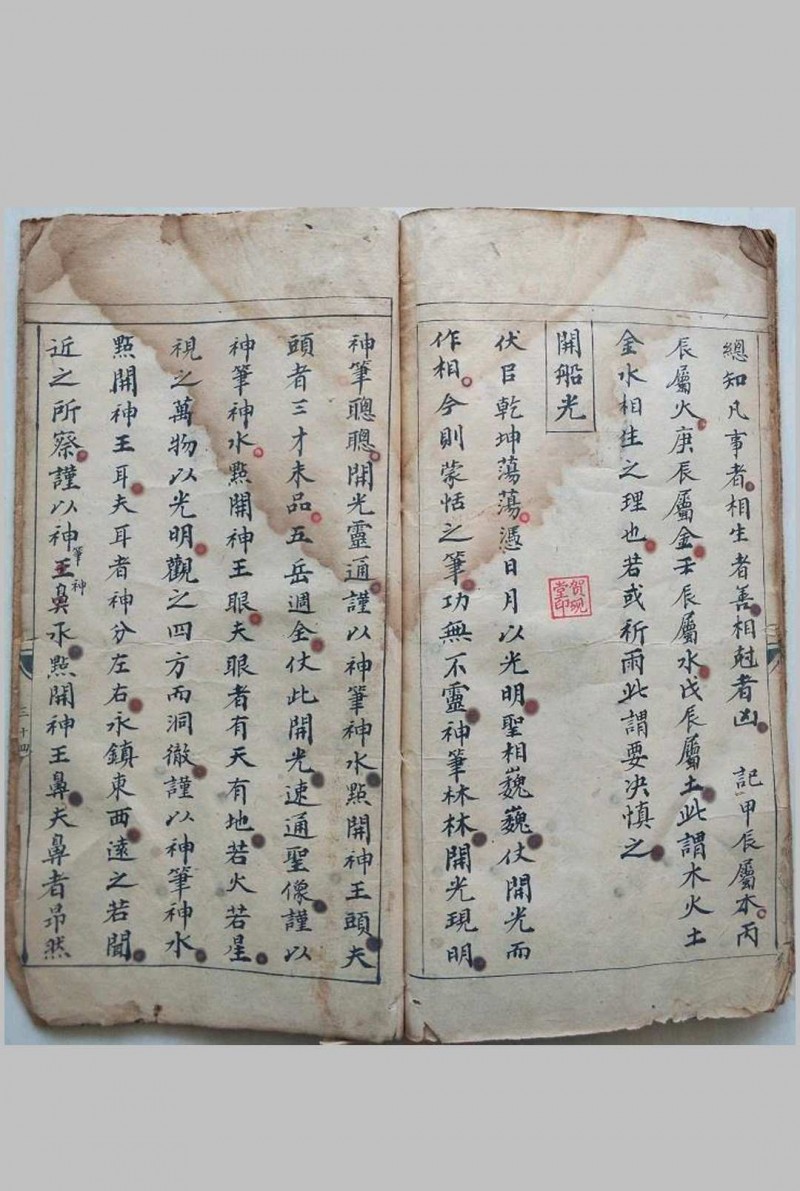 總知凡事者相生者善相尅者凶 記甲辰屬木丙
辰屬火庚辰屬金壬辰屬水戊辰屬土此謂木火土
金水相生之理也若或祈雨此謂要决慎之
開船光
伏㠯乾坤蕩蕩憑日月以光明聖相巍巍仗開光而
作相今則蒙恬之筆功無不靈神筆林林開光現明
神筆聰聰開光靈通謹以神筆神水點開神王頭夫
頭者三才未品五岳週全仗此開光速通聖像謹以
神筆神水點開神王眼夫眼者有天有地若火若星
視之萬物以光明觀之四方而洞徹謹以神筆神水
點開神王耳夫耳者神分左右永鎮東西遠之若聞
近之所察謹以神王鼻水點開神王鼻夫鼻者昂然
筆神
三十四
賀硯堂印